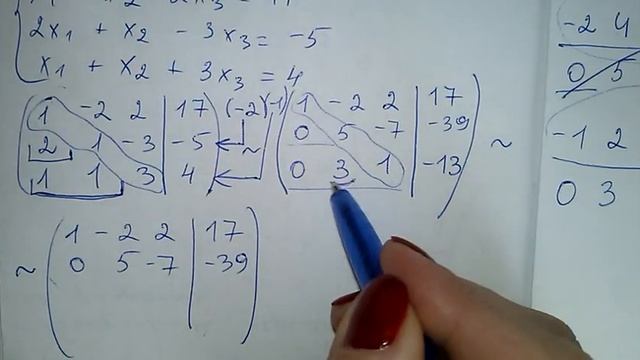 2x₁ + x₂ - 3x₃ = -5
x₁ + x₂ + 3x₃ = 4
1 -2 2 | 17 (-2)(-1) 1 -2 2 | 17
2 1 -3 | -5 ~ 0 5 -7 | -39 ~
1 1 3 | 4 0 3 1 | -13
~ 1 -2 2 | 17
0 5 -7 | -39
-2 4
0 5
-1 2
0 3